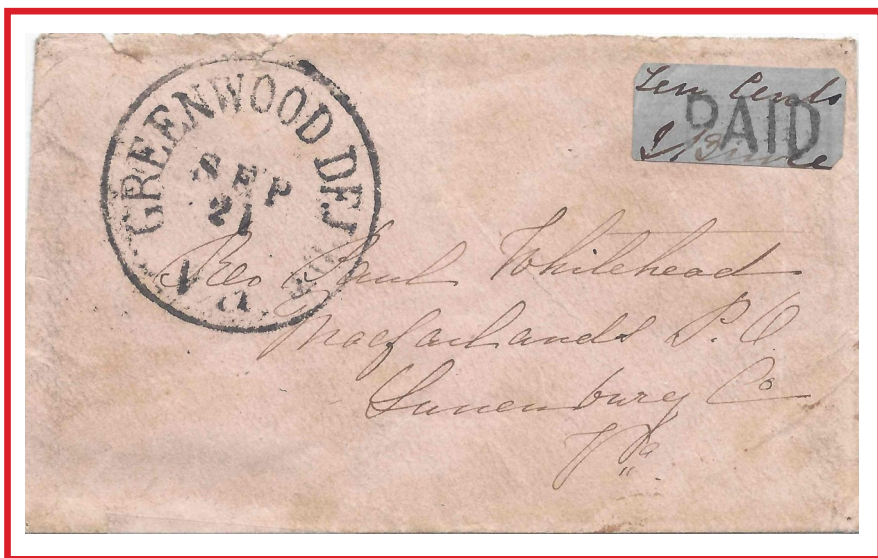 GREENWOOD DEP
SEP
21
Va
Ten Cents
PAID
Rev Paul Whitehead
Macfarlands P.O
Lunenburg Co
Va